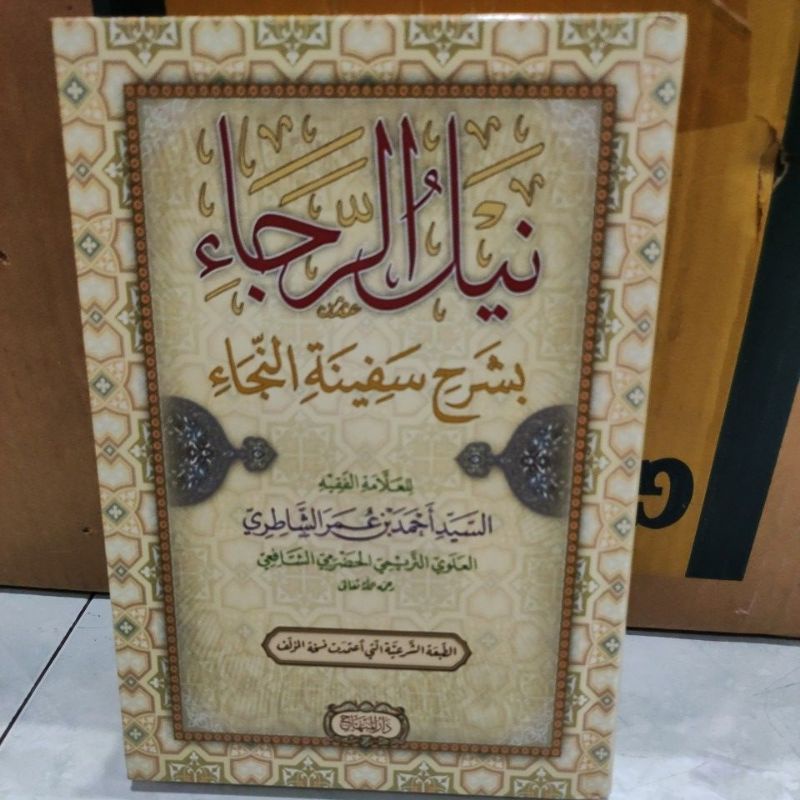 نيل الرجاء
بشرح سفينة النجاء
للعلامة الفقيه
السيد أحمد بن عمر الشاطري
العلوي التريمي الحضرمي الشافعي
رحمه الله تعالى
الطبعة الشرعية التي اعتمدت نسخة المؤلف
دار المنهاج